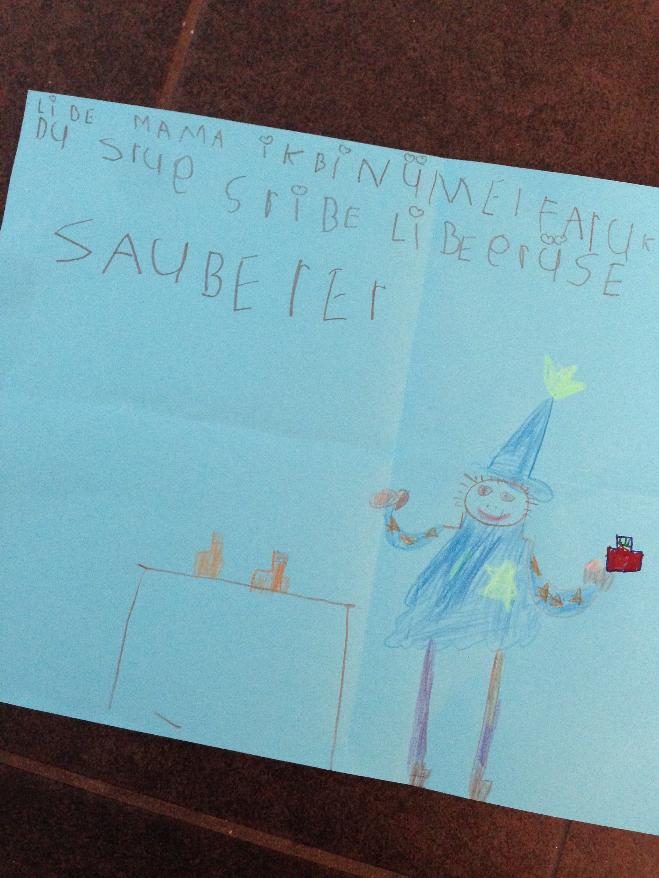 LiBE MAMA iKBiN üMEIFAruK
Du srue SriBE LiBEerüSE
SAUBErEr